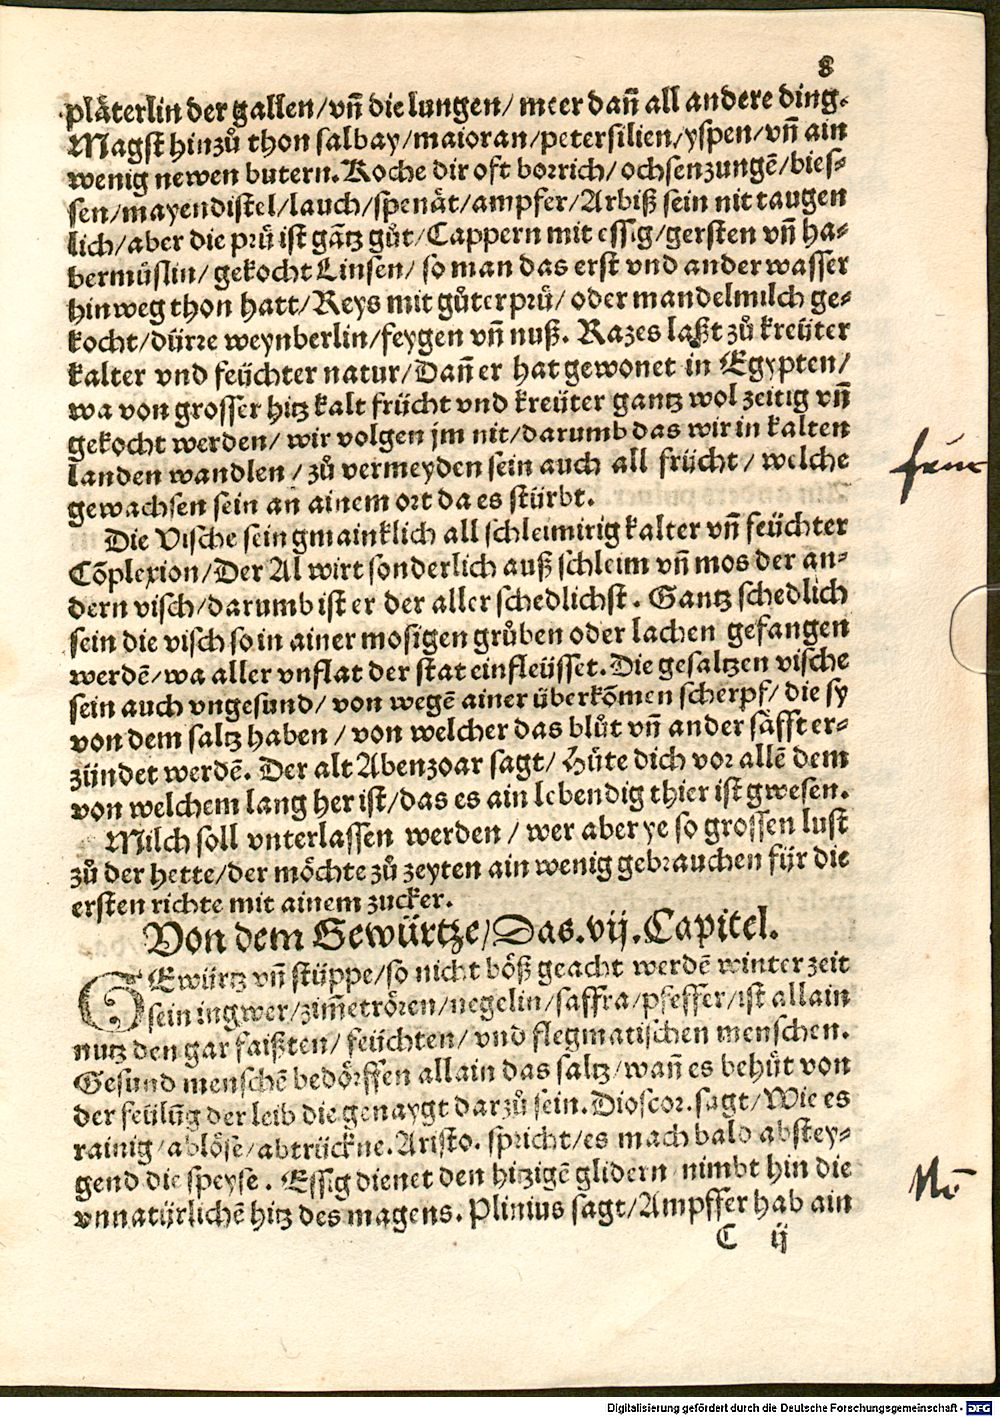 8
pläterlin der gallen/vñ die lungen/meer dañ all andere ding.
Magst hinzů thon salbay/maioran/petersilien/yspen/vñ ain
wenig newen butern. Koche dir oft borrich/ochsenzungẽ/bies-
sen/mayendistel/lauch/spenät/ampfer/Arbiß sein nit taugen
lich/aber die prü ist gãtz gůt/Cappern mit essig/gersten vñ ha-
bermüslin/gekocht Linsen/so man das erst vnd ander wasser
hinweg thon hatt/Reys mit gůter prü/oder mandelmilch ge-
kocht/dürre weynberlin/feygen vñ nuß. Razes laßt zů kreüter
kalter vnd feüchter natur/Dañ er hat gewonet in Egypten/
wa von grosser hitz kalt frücht vnd kreüter gantz wol zeitig vñ
gekocht werden/wir volgen jm nit/darumb das wir in kalten
landen wandlen/zů vermeyden sein auch all frücht/welche
gewachsen sein an ainem ort da es stürbt.
Die Vische sein gmainklich all schleimirig kalter vñ feüchter
Cõplexion/Der Al wirt sonderlich auß schleim vñ mos der an-
dern visch/darumb ist er der aller schedlichst. Gantz schedlich
sein die visch so in ainer mosigen grůben oder lachen gefangen
werdẽ/wa aller vnflat der stat einfleüsset. Die gesaltzen vische
sein auch vngesund/von wegẽ ainer überkõmen scherpf/die sy
von dem saltz haben/von welcher das blůt vñ ander säfft er-
zündet werdẽ. Der alt Abenzoar sagt/Hüte dich vor allẽ dem
von welchem lang her ist/das es ain lebendig thier ist gwesen.
Milch soll vnterlassen werden/wer aber ye so grossen lust
zů der hette/der möchte zů zeyten ain wenig gebrauchen für die
ersten richte mit ainem zucker.
Von dem Gewürtze/Das.vij.Capitel.
GEwürtz vñ stüppe/so nicht böß geacht werdẽ winter zeit
sein ingwer/zim̃etrören/negelin/saffra/pfeffer/ist allain
nutz den gar faißten/feüchten/vnd flegmatischen menschen.
Gesund menschẽ bedörffen allain das saltz/wañ es behüt von
der feülũg der leib die genaygt darzů sein. Dioscor. sagt/Wie es
rainig/ablöse/abtrückne. Aristo. spricht/es mach bald abstey-
gend die speyse. Essig dienet den hitzigẽ glidern nimbt hin die
vnnatürlichẽ hitz des magens. Plinius sagt/Ampffer hab ain
C ij
Digitalisierung gefördert durch die Deutsche Forschungsgemeinschaft - DFG